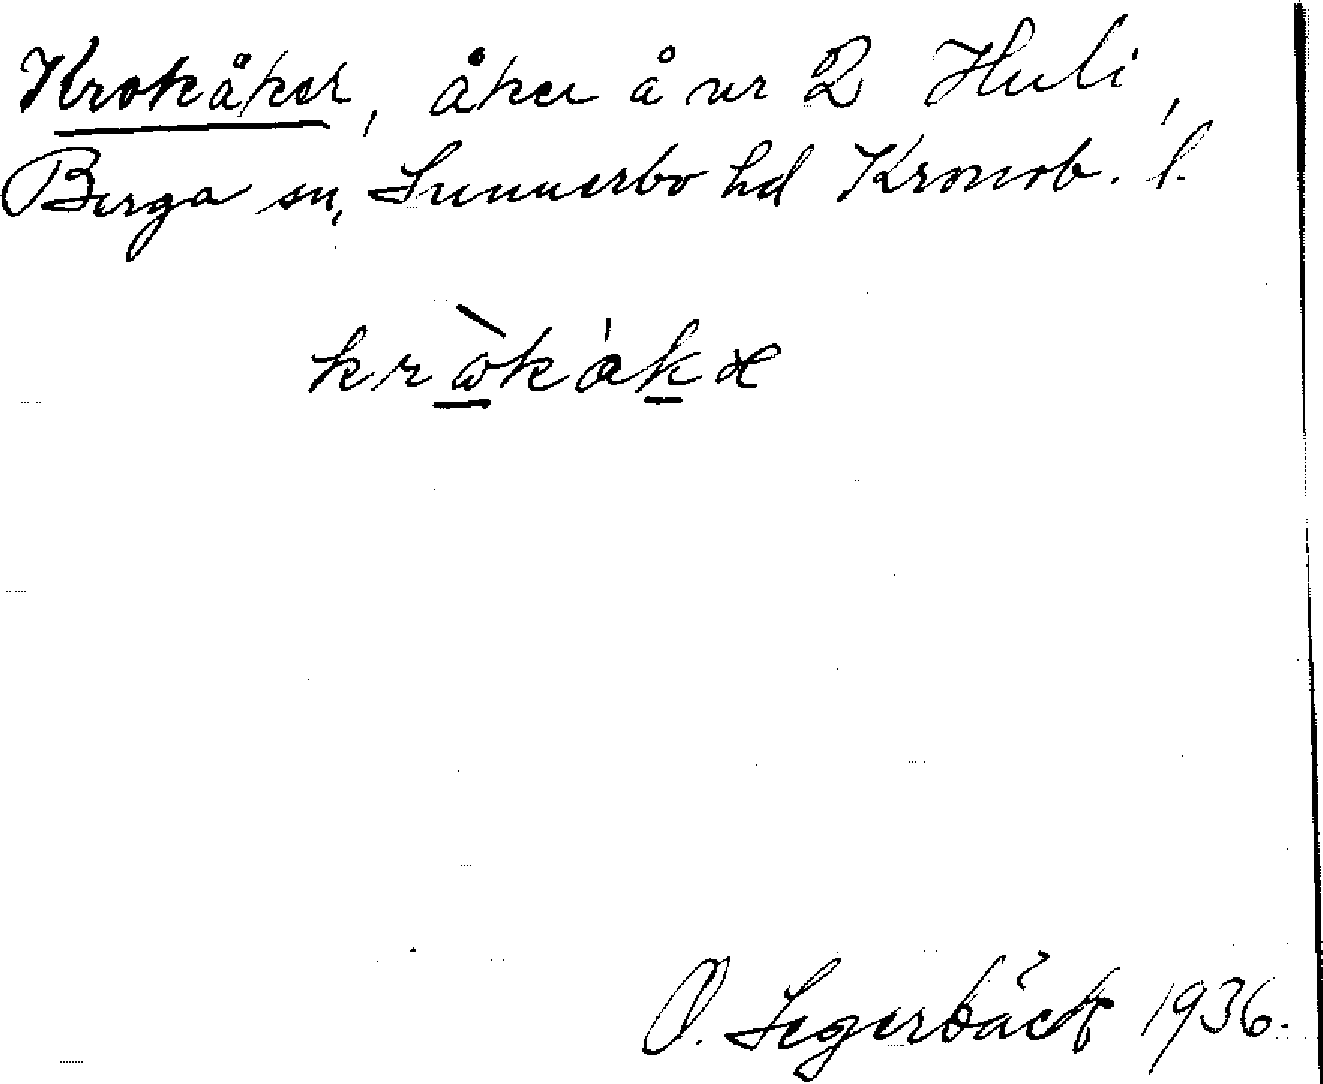 Krokåker, åker å nr 2 Huli,
Berga sn, Sunnerbo hd Kronob. l.
O. Segerbäck 1936.